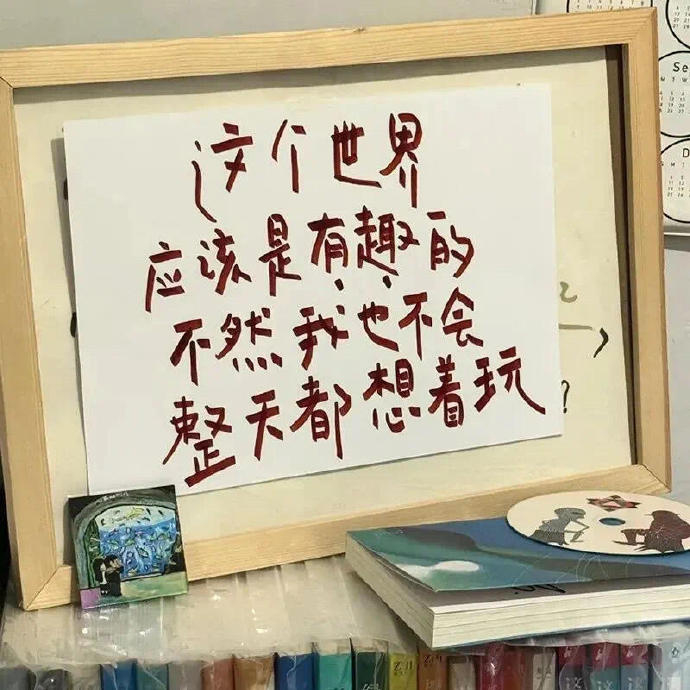 这个世界
应该是有趣的
不然我也不会
整天都想着玩
Se
D
?